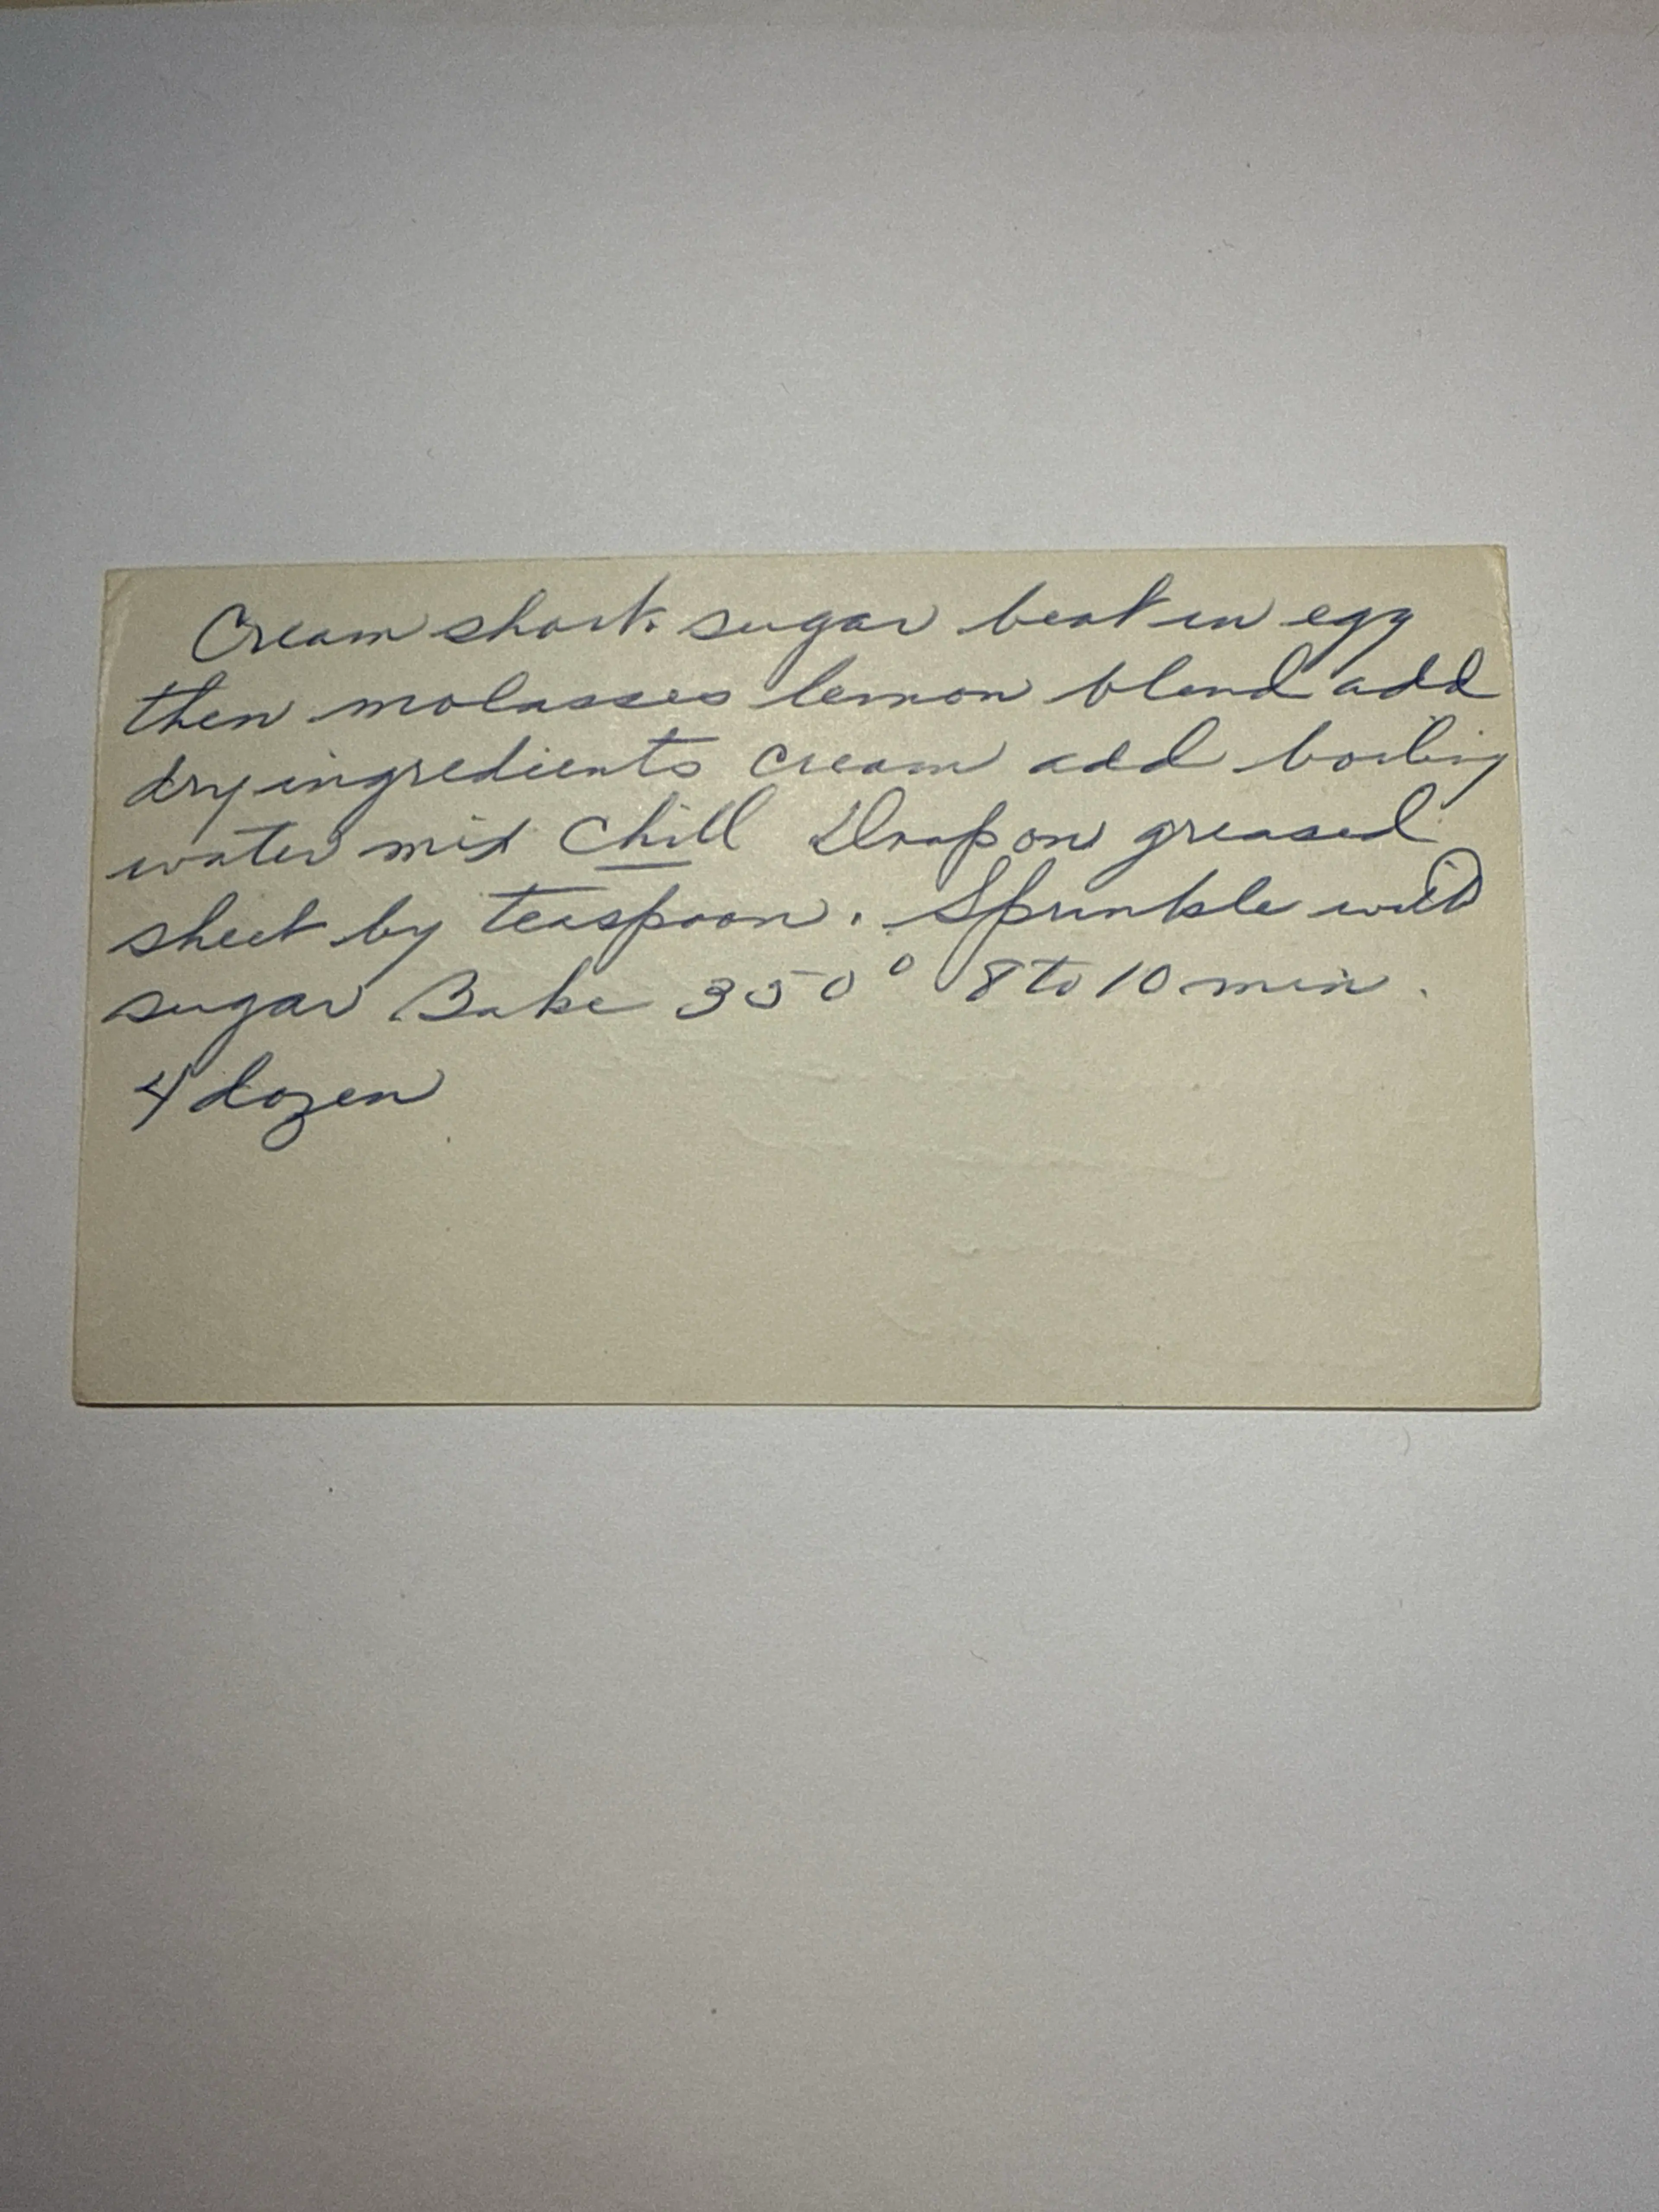 Cream short. sugar beat in egg
then molasses lemon blend add
dry ingredients cream add boiling
water mix Chill Drop on greased
sheet by teaspoon. Sprinkle with
sugar Bake 350° 8 to 10 min.
4 dozen